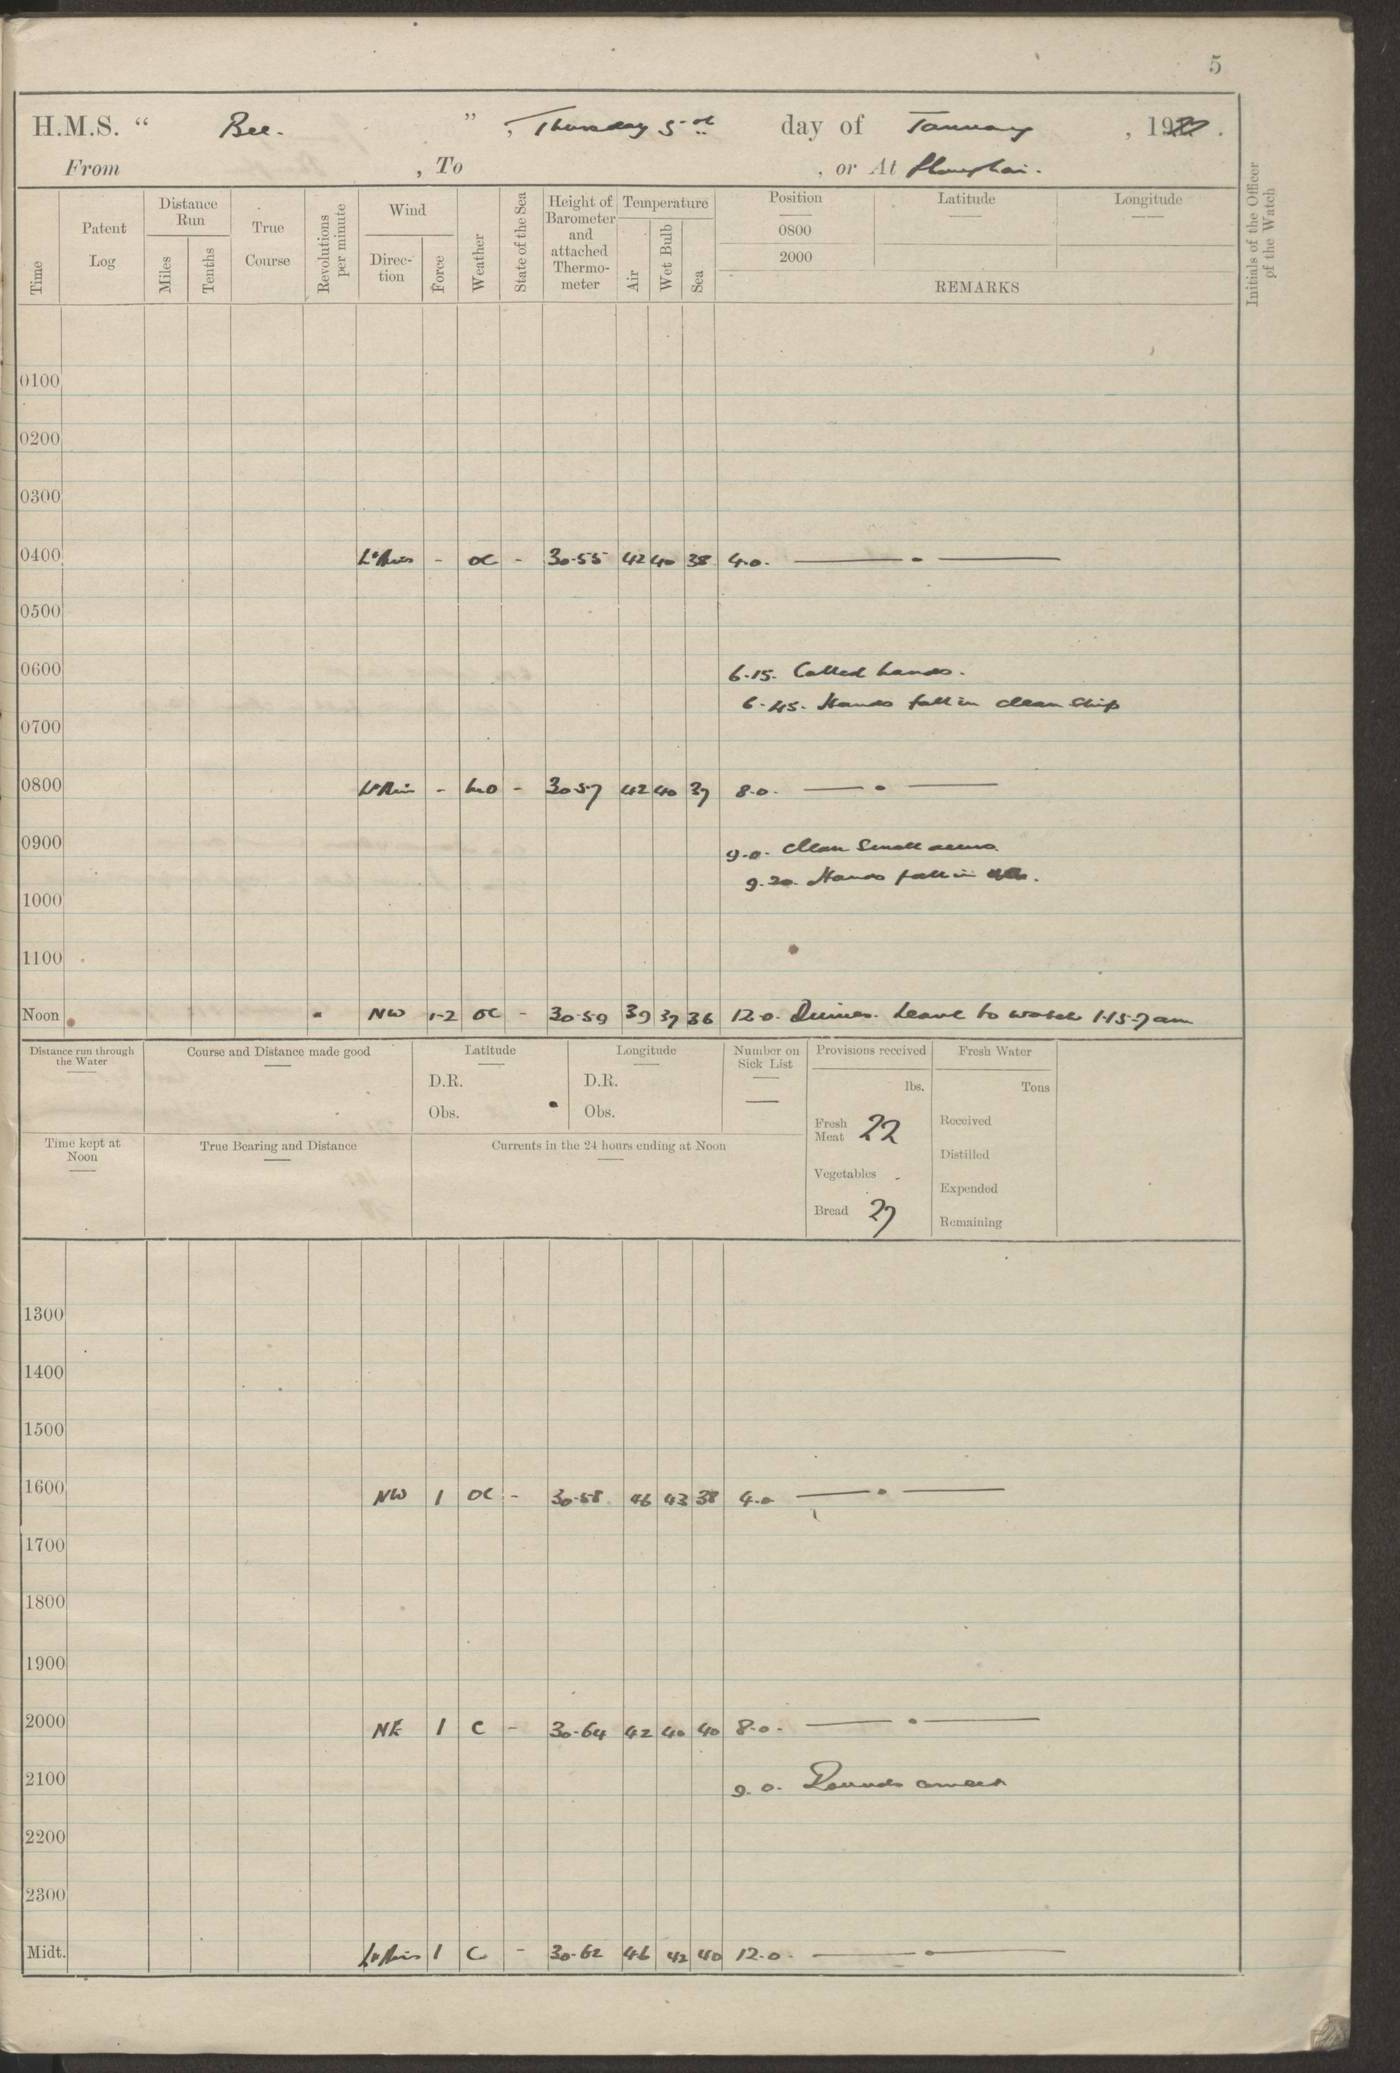 5
H.M.S. “ Bee. ” , Thursday 5th day of January , 1922 .
From , To , or At Shanghai.
Time Patent Log Distance Run Miles Tenths True Course Revolutions per minute Wind Direction Force Weather State of the Sea Height of Barometer and attached Thermometer Temperature Air Wet Bulb Sea Position 0800 2000 Latitude Longitude REMARKS Initials of the Officer of the Watch
0100
0200
0300
0400 Lt Airs - oc - 30.55 42 40 38 4.0.
0500
0600
6.15. Called hands.
6.45. Hands fall in clean ship
0700
0800 Lt Air - - 30.57 42 40 37 8.0.
0900 9.0. Clean small arms.
9.20. Hands fall in
1000
1100
Noon NW 1-2 oc - 30.59 39 37 36 12.0. Dinner. Leave to watch 1.15-7 am
Distance run through the Water Course and Distance made good Latitude Longitude Number on Sick List Provisions received Fresh Water
D.R. D.R. — lbs. Tons
Obs. Obs. Fresh Meat 22 Received
Time kept at Noon True Bearing and Distance Currents in the 24 hours ending at Noon Vegetables - Distilled
Expended
Bread 27 Remaining
1300
1400
1500
1600 NW 1 oc - 30.58 46 43 38 4.0
1700
1800
1900
2000 NE 1 c - 30.64 42 40 40 8.0.
2100 9.0. Rounds correct
2200
2300
Midt. Lt Airs 1 c - 30.62 46 42 40 12.0.